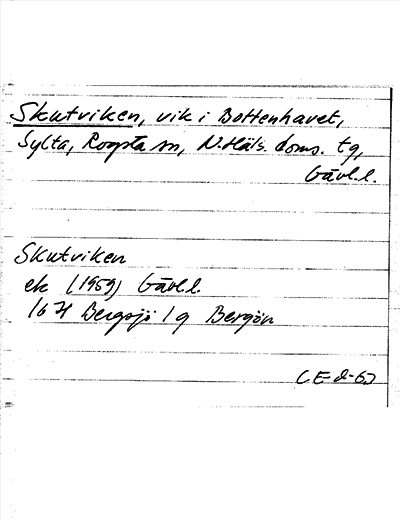 Skutviken, vik i Bottenhavet,
Sylta, Rogsta sn, N.Häls. doms. tg,
Gävl.l.
Skutviken
ek (1959) Gävl.l.
16H Bergsjö 1g Bergön
CE-d-63